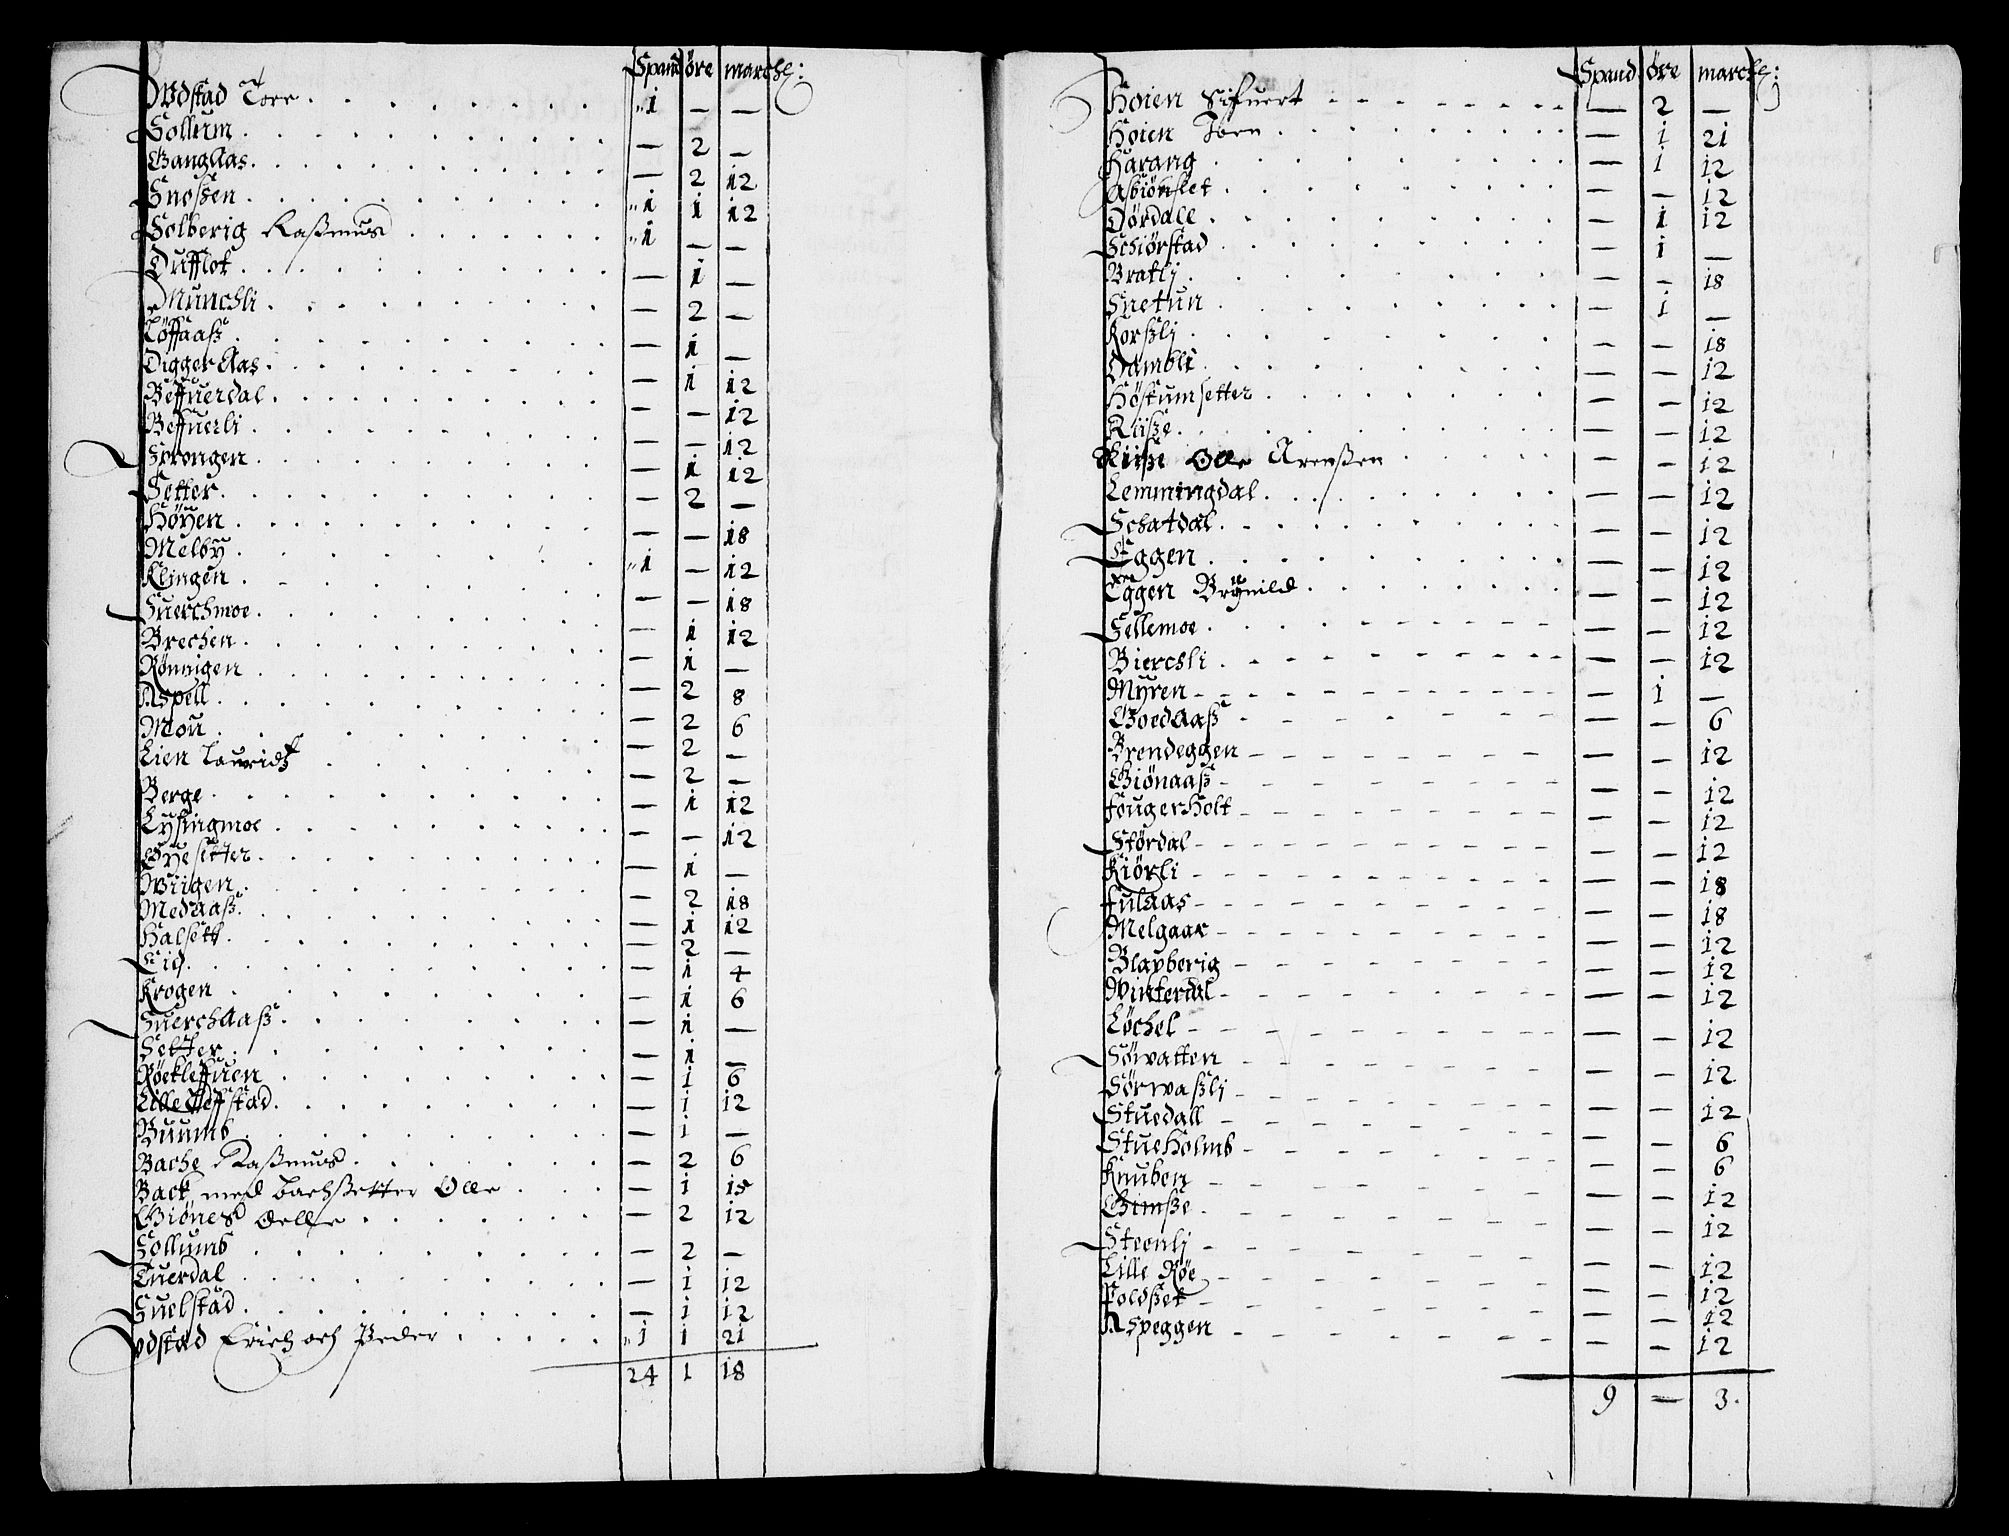 Spand øre march:
Wdstad Tore 1 — —
Sollum — 2 —
Gangaas — 2 12
Snoßen 1 1 12
Solberig Raßmus 1 — —
Dufflot — 1 —
Munchli — 2 —
Tøffaaß — 1 —
Digger Aas — 1 12
Beffuerdal — — 12
Beffuerli — — 12
Sprongen — 1 12
Setter — 2 —
Høyen — — 18
Melby 1 — 12
Klingen — — 18
Suerchmoe — 1 12
Brechen — 1 —
Rønnigen — 2 8
Aspell — 2 6
Mou — 2 —
Lien Lauridtz — 2 —
Berge — 1 12
Lysingmoe — — 12
Øyesetter — 1 —
Wiigen — 2 18
Medaaß — 1 12
Halsett — 2 —
Lid — 1 4
Krogen — 1 6
Suerchaaß — 1 —
Setter — 1 —
Røekleffuen — 1 6
Lille Wffstad — 1 12
Buumb — 1 —
Bache Raßmus — 2 6
Back med bachßetter Olle — 1 15
Giønes Oelle — 2 12
Sollumb — 2 —
Tuerdal — 1 12
Suelstad — 1 12
Vdstad Erich och Peder 1 1 21
24 1 18
Spand øre march:
Høien Sifuert — 2 —
Høien Joen — 1 21
Harang — 1 12
Asbiønslet — — 12
Dørdale — 1 12
Schiørstad — 1 —
Bratlj — — 18
Snetun — 1 —
Korßlj — — 18
Dambli — — 12
Høstumsetter — — 12
Riiße — — 12
Riiße Olle Arenßen — — 12
Lemmingdal — — 12
Schatdal — — 12
Eggen — — 12
Eggen Brynild — — 12
Sellemoe — — 12
Bierchli — — 12
Myren — 1 —
Goedaaß — — 6
Brendeggen — — 12
Giønaaß — — 12
Fougerholt — — 12
Størdal — — 12
Kiørli — — 18
Fulaas — — 18
Melgaar — — 12
Blayberig — — 12
Winterdal — — 12
Løchel — — 12
Søwatten — — 12
Sørwaßlj — — 12
Stuedall — — 6
Stueholmb — — 6
Knuben — — 12
Gimße — — 12
Steenlj — — 12
Lille Røe — — 12
Poldßet — — 12
Aspeggen — — 12
9 — 3.